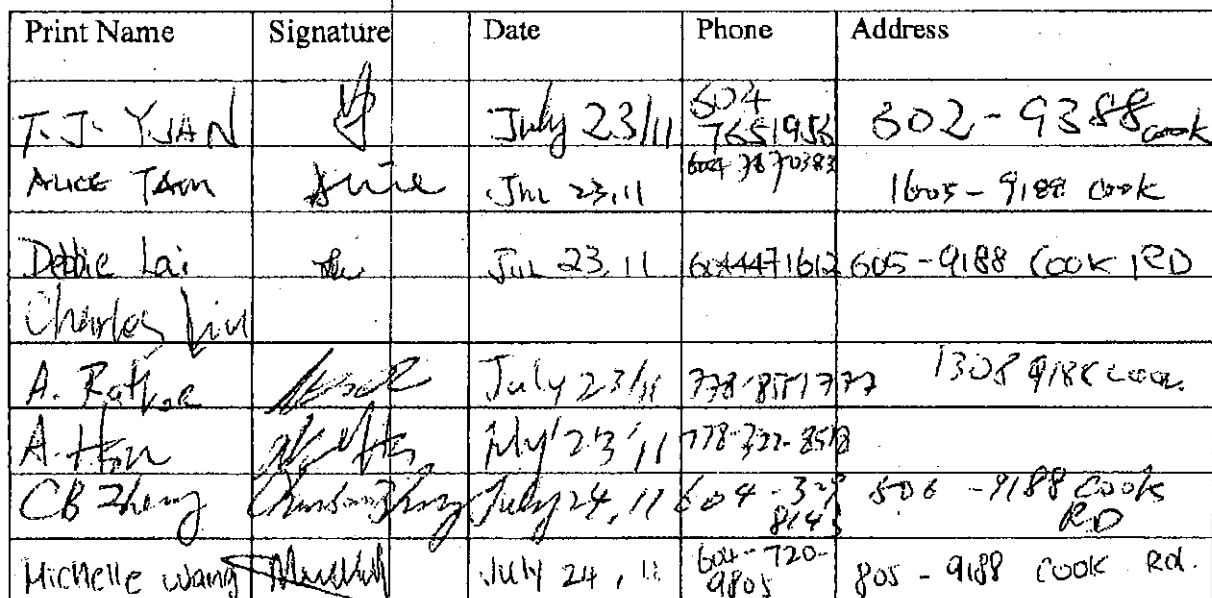 Print Name Signature Date Phone Address
T.J. YUAN July 23/11 604 7651956 602-9388 cook
ALICE TAM Alice Jul 23,11 604 7870383 1605-9188 cook
Debbie Lai Jul 23,11 6044471612 605-9188 COOK RD
Charles Liu
A. July 23/11 778 1308 9188
A. July 23/11 778-322-8518
CB Zheng July 24,11 604-329 8143 506-9188 Cook RD
Michelle Wang July 24, 11 604-720-9805 805-9188 COOK Rd.